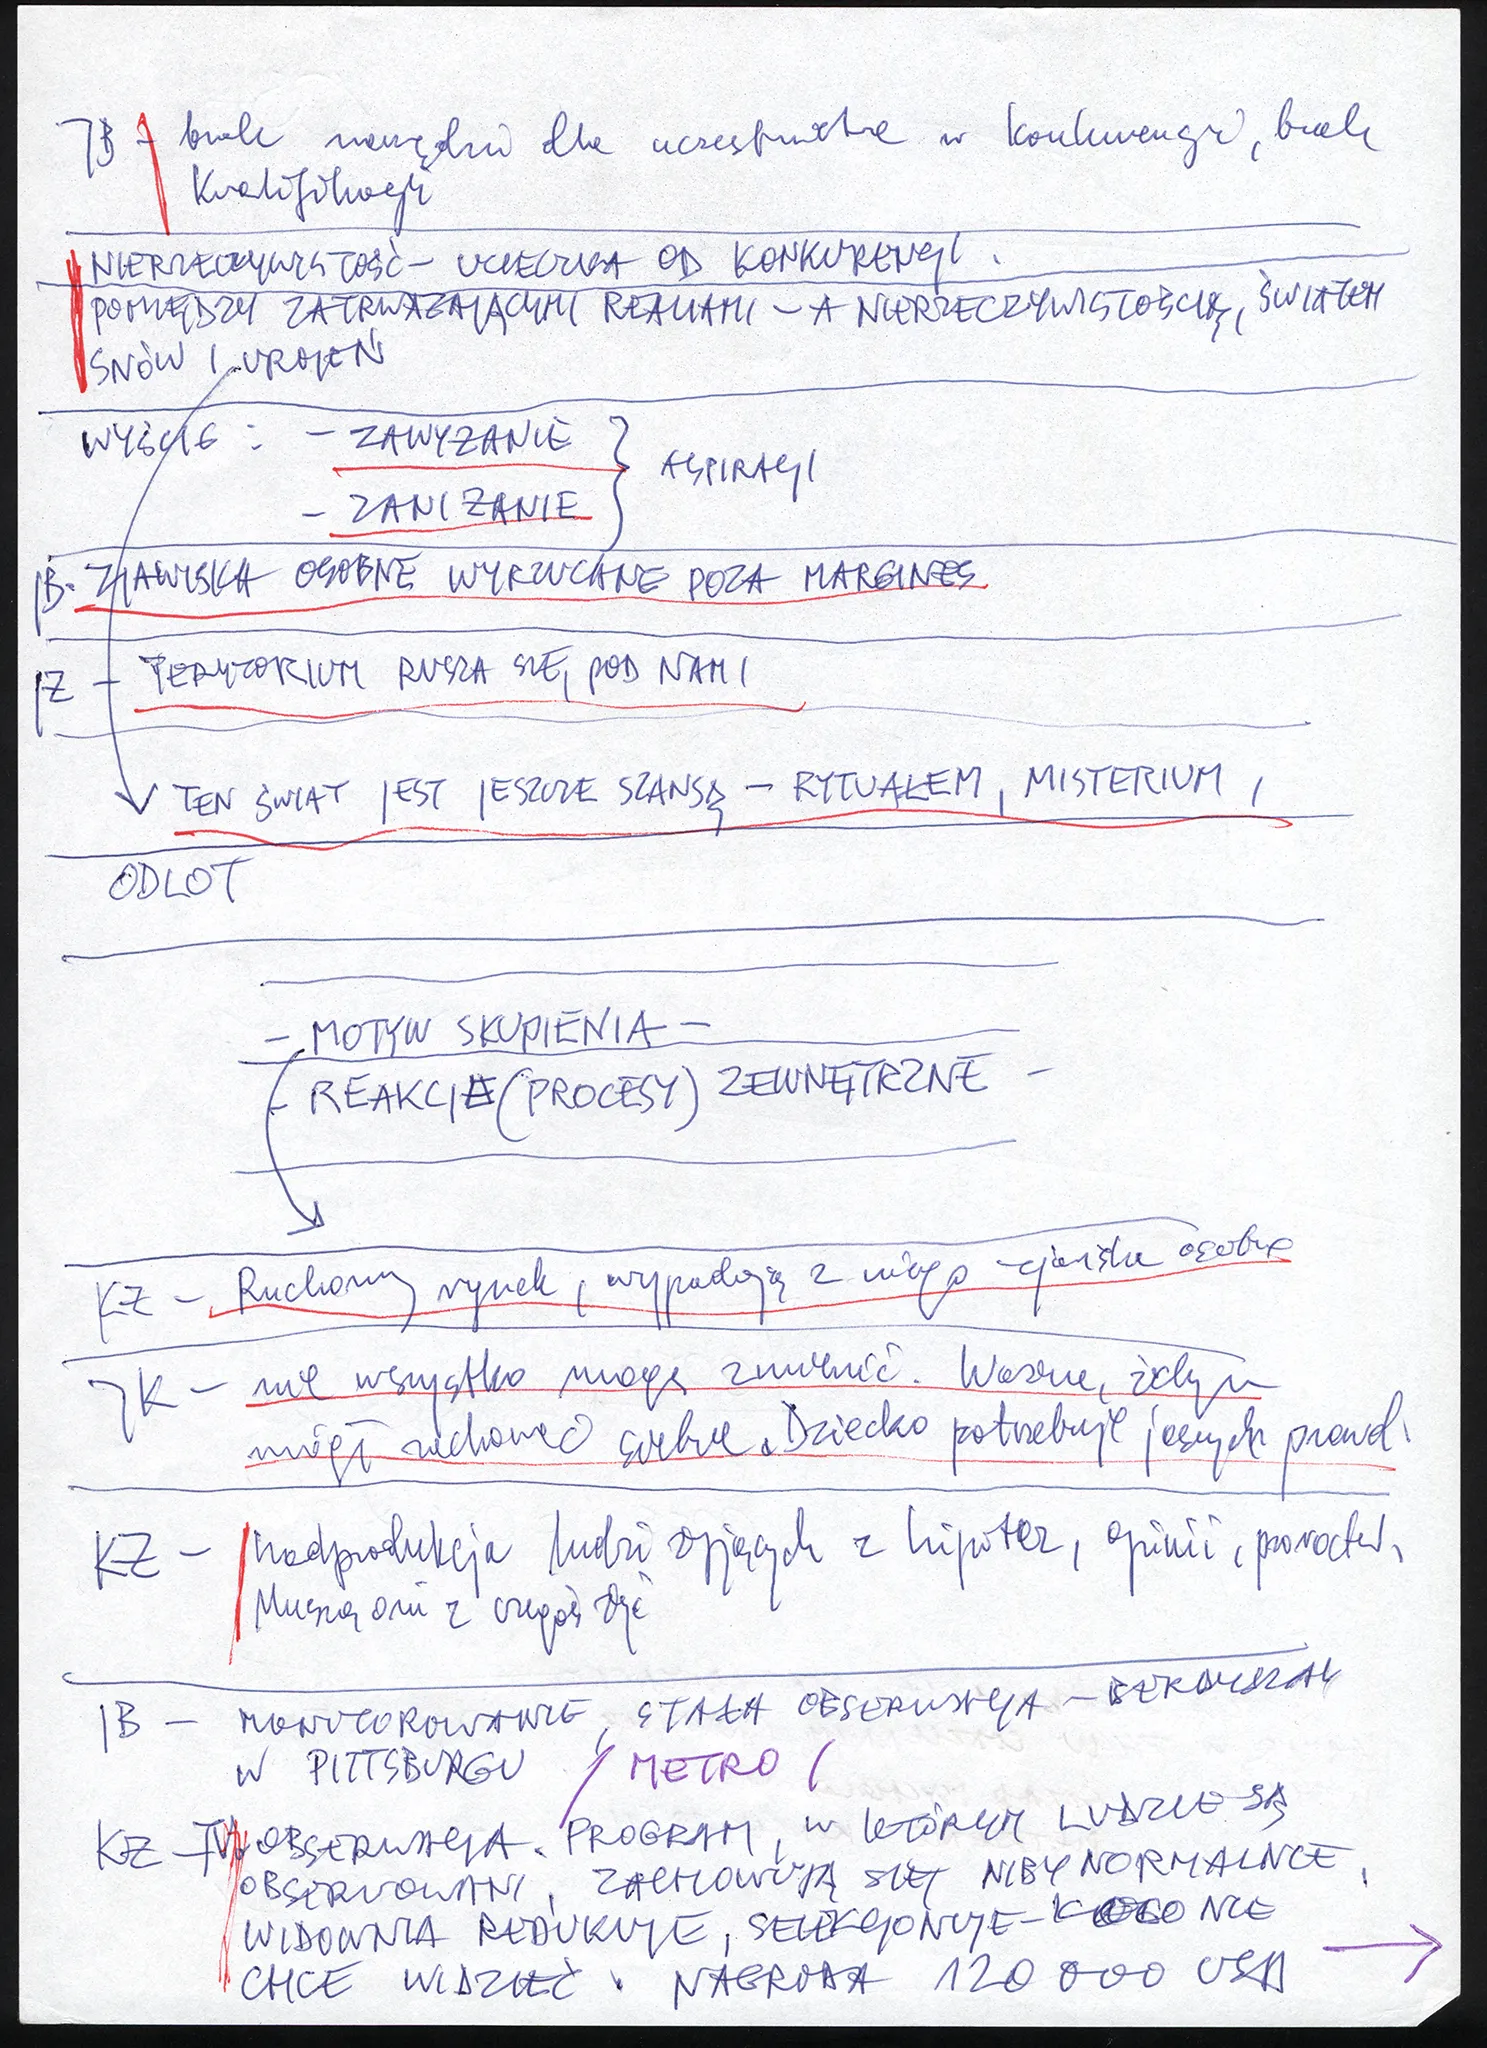 JB - brak narzędzi dla uczestnictwa w konkurencji, brak
kwalifikacji
NIERZECZYWISTOŚĆ - UCIECZKA OD KONKURENCJI.
POMIĘDZY ZATRWAŻAJĄCYMI REALIAMI - A NIERZECZYWISTOŚCIĄ, ŚWIATEM
SNÓW I UROJEŃ
WYJŚCIE : - ZAWYŻANIE
ASPIRACJI
- ZANIŻANIE
JB - ZJAWISKA OSOBNE WYRZUCANE POZA MARGINES
JZ - TERYTORIUM RUSZA SIĘ POD NAMI
TEN ŚWIAT JEST JESZCZE SZANSĄ - RYTUAŁEM, MISTERIUM,
ODLOT
- MOTYW SKUPIENIA -
- REAKCJE (PROCESY) ZEWNĘTRZNE -
KZ - Ruchomy rynek, wypadają z niego zjawiska osobne
JK - nie wszystko mogę zmienić. Ważne, żebym
mógł zachować siebie. Dziecko potrzebuje jasnych prawd.
KZ - Nadprodukcja ludzi żyjących z hipotez, opinii, proroctw.
Muszą oni z czegoś żyć
JB - MONITOROWANIE, STAŁA OBSERWACJA -
W PITTSBURGU / METRO /
KZ - TV OBSERWACJA. PROGRAM, W KTÓRYM LUDZIE SĄ
OBSERWOWANI, ZACHOWUJĄ SIĘ NIBY NORMALNIE,
WIDOWNIA REDUKUJE, SELEKCJONUJE - KOGO NIE
CHCE WIDZIEĆ. NAGRODA 120 000 USD